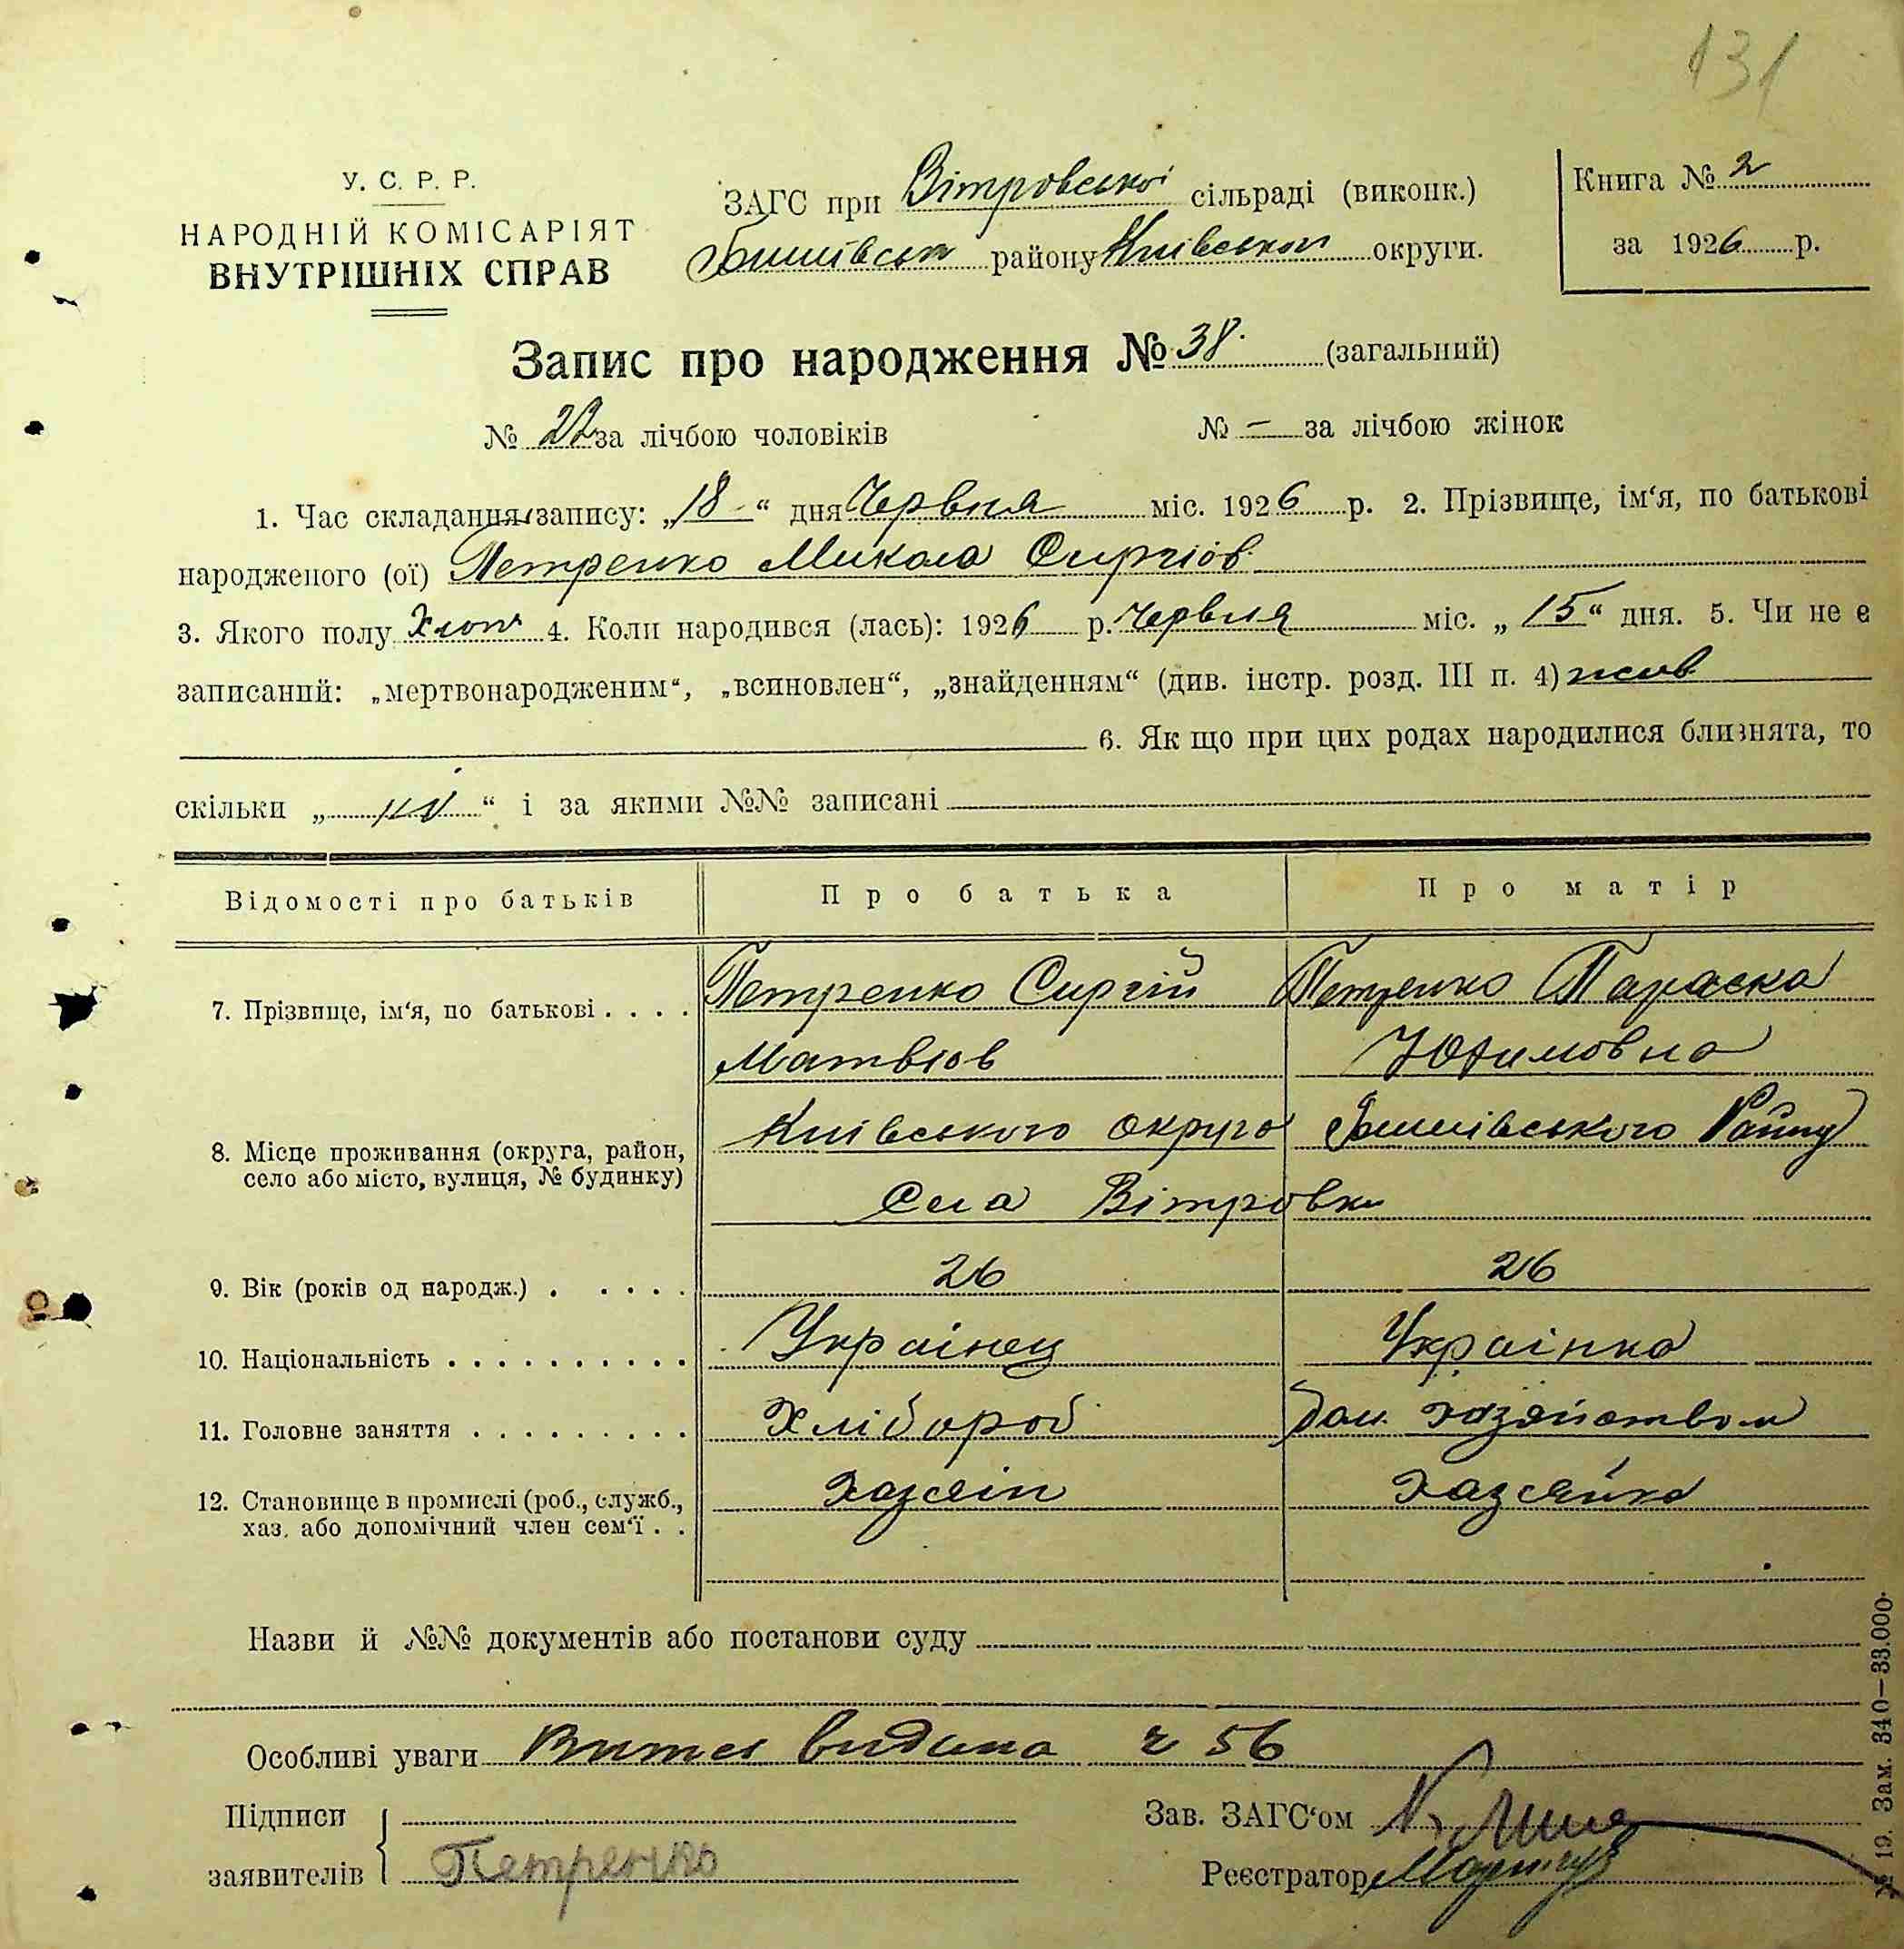 131
У. С. Р. Р.
НАРОДНІЙ КОМІСАРІЯТ
ВНУТРІШНІХ СПРАВ
ЗАГС при Вітровської сільраді (виконк.)
району Київської округи.
Книга № 2
за 1926 р.
Запис про народження № 38. (загальний)
№ 22 за лічбою чоловіків № — за лічбою жінок
1. Час складання запису: „18“ дня Червня міс. 1926 р. 2. Прізвище, ім‘я, по батькові
народженого (ої) Петренко Микола Сиргіов.
3. Якого полу Хлоп. 4. Коли народився (лась): 1926 р. Червня міс. „15“ дня. 5. Чи не є
записаний: „мертвонародженим“, „всиновлен“, „знайденням“ (див. інстр. розд. III п. 4) жив
6. Як що при цих родах народилися близнята, то
скільки „ні“ і за якими №№ записані
Відомості про батьків Про батька Про матір
7. Прізвище, ім‘я, по батькові . . . . Петренко Сиргій Петренко Параска
Матвіов Юхимовна
8. Місце проживання (округа, район, село або місто, вулиця, № будинку) Київського округа Бишівського Району
Села Вітровки
9. Вік (років од народж.) . . . . . 26 26
10. Національність . . . . . . . . . . . Украінец Украінка
11. Головне заняття . . . . . . . . . Хлібороб дом. хазяйством
12. Становище в промислі (роб., служб., хаз. або допомічний член сем‘ї . . Хазяін Хазяйка
Назви й №№ документів або постанови суду
Особливі уваги видана 56
Підписи
заявителів Петренко
Зав. ЗАГС‘ом
Реєстратор
19. Зам. 340—33.000.